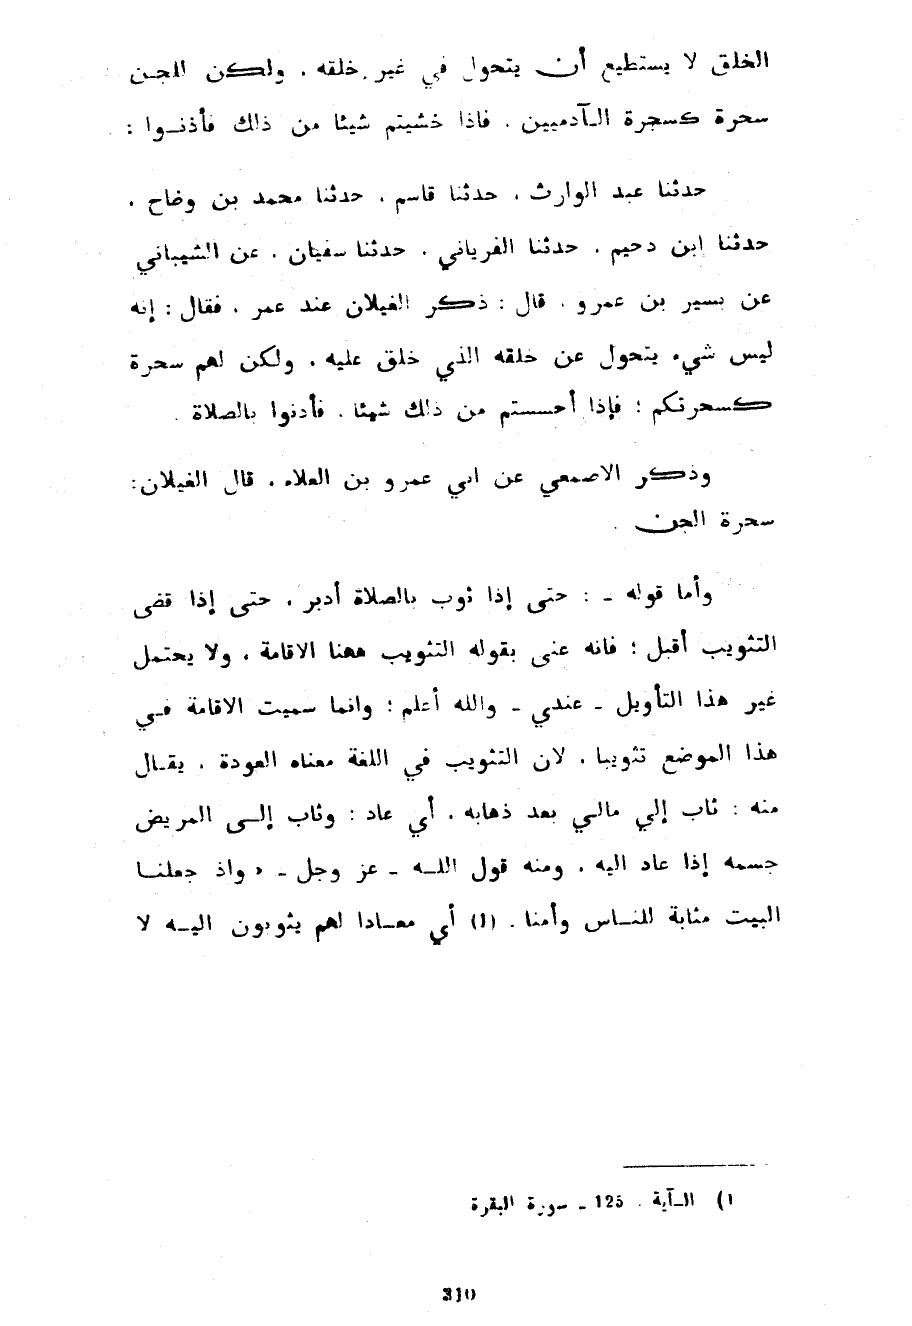 الخلق لا يستطيع أن يتحول في غير خلقه ، ولكن للجن
سحرة كسحرة الآدميين . فاذا خشيتم شيئا من ذلك فأذنوا :
حدثنا عبد الوارث ، حدثنا قاسم ، حدثنا محمد بن وضاح ،
حدثنا ابن دحيم ، حدثنا الفرياني ، حدثنا سفيان ، عن الشيباني
عن بسير بن عمرو ، قال : ذكر الغيلان عند عمر ، فقال : إنه
ليس شيء يتحول عن خلقه الذي خلق عليه ، ولكن لهم سحرة
كسحرتكم ؛ فإذا أحسستم من ذلك شيئا ، فأذنوا بالصلاة .
وذكر الاصمعي عن ابي عمرو بن العلاء ، قال الغيلان :
سحرة الجن .
وأما قوله ـ : حتى إذا ثوب بالصلاة أدبر ، حتى إذا قضى
التثويب أقبل ؛ فانه عنى بقوله التثويب ههنا الاقامة ، ولا يحتمل
غير هذا التأويل ـ عندي ـ والله أعلم ؛ وانما سميت الاقامة في
هذا الموضع تثويبا ، لان التثويب في اللغة معناه العودة ، يقال
منه : ثاب إلي مالي بعد ذهابه ، أي عاد : وثاب إلى المريض
جسمه إذا عاد اليه ، ومنه قول الله ـ عز وجل ـ « واذ جعلنا
البيت مثابة للناس وأمنا . (1) أي معادا لهم يثوبون اليه لا
1) الآية . 125 ـ سورة البقرة
310